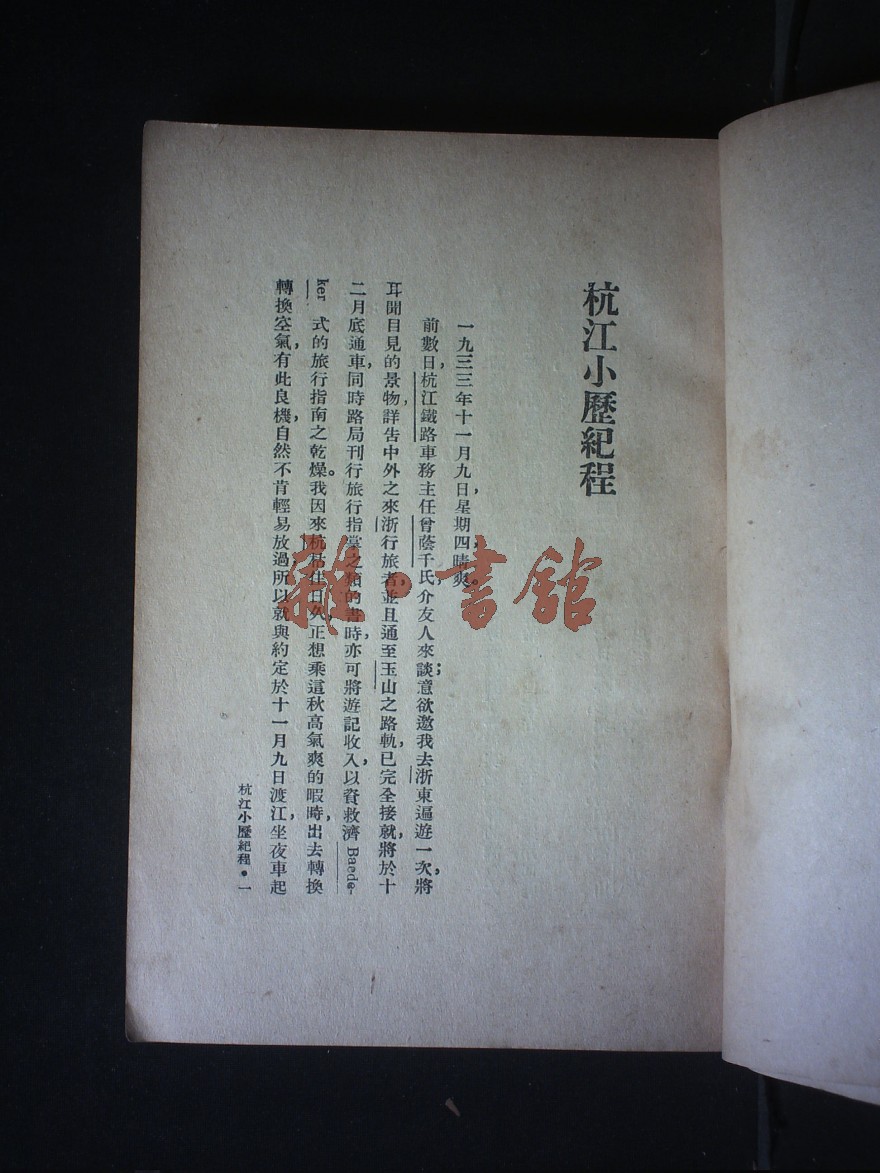 杭江小歷紀程
一九三三年十一月九日，星期四，晴爽。
前數日，杭江鐵路車務主任曾蔭千氏，介友人來談；意欲邀我去浙東遍遊一次，將
耳聞目見的景物，詳告中外之來浙行旅者，並且通至玉山之路軌，已完全接就，將於十
二月底通車，同時路局刊行旅行指掌之類的書時，亦可將遊記收入，以資救濟 Baede-
ker 式的旅行指南之乾燥。我因來杭枯住日久，正想乘這秋高氣爽的暇時，出去轉換
轉換空氣，有此良機，自然不肯輕易放過，所以就與約定於十一月九日渡江，坐夜車起
杭江小歷紀程・一
雜・書館